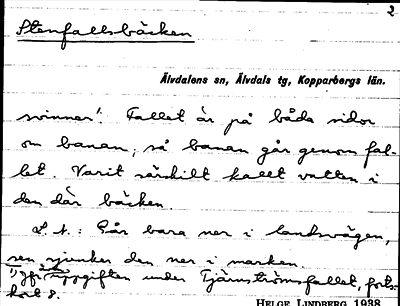 2
Stenfallsbäcken
Älvdalens sn, Älvdals tg, Kopparbergs län.
svinner! Fallet är på båda sidor
om banan, så banan går genom fal-
let. Varit särskilt kallt vatten i
den där bäcken.
L. A.: Går bara ner i landsvägen,
sen sjunker den ner i marken.
1) Jfr uppgiften under Tjärnströmsfallet, forts.
kort 8.
HELGE LINDBERG 1938